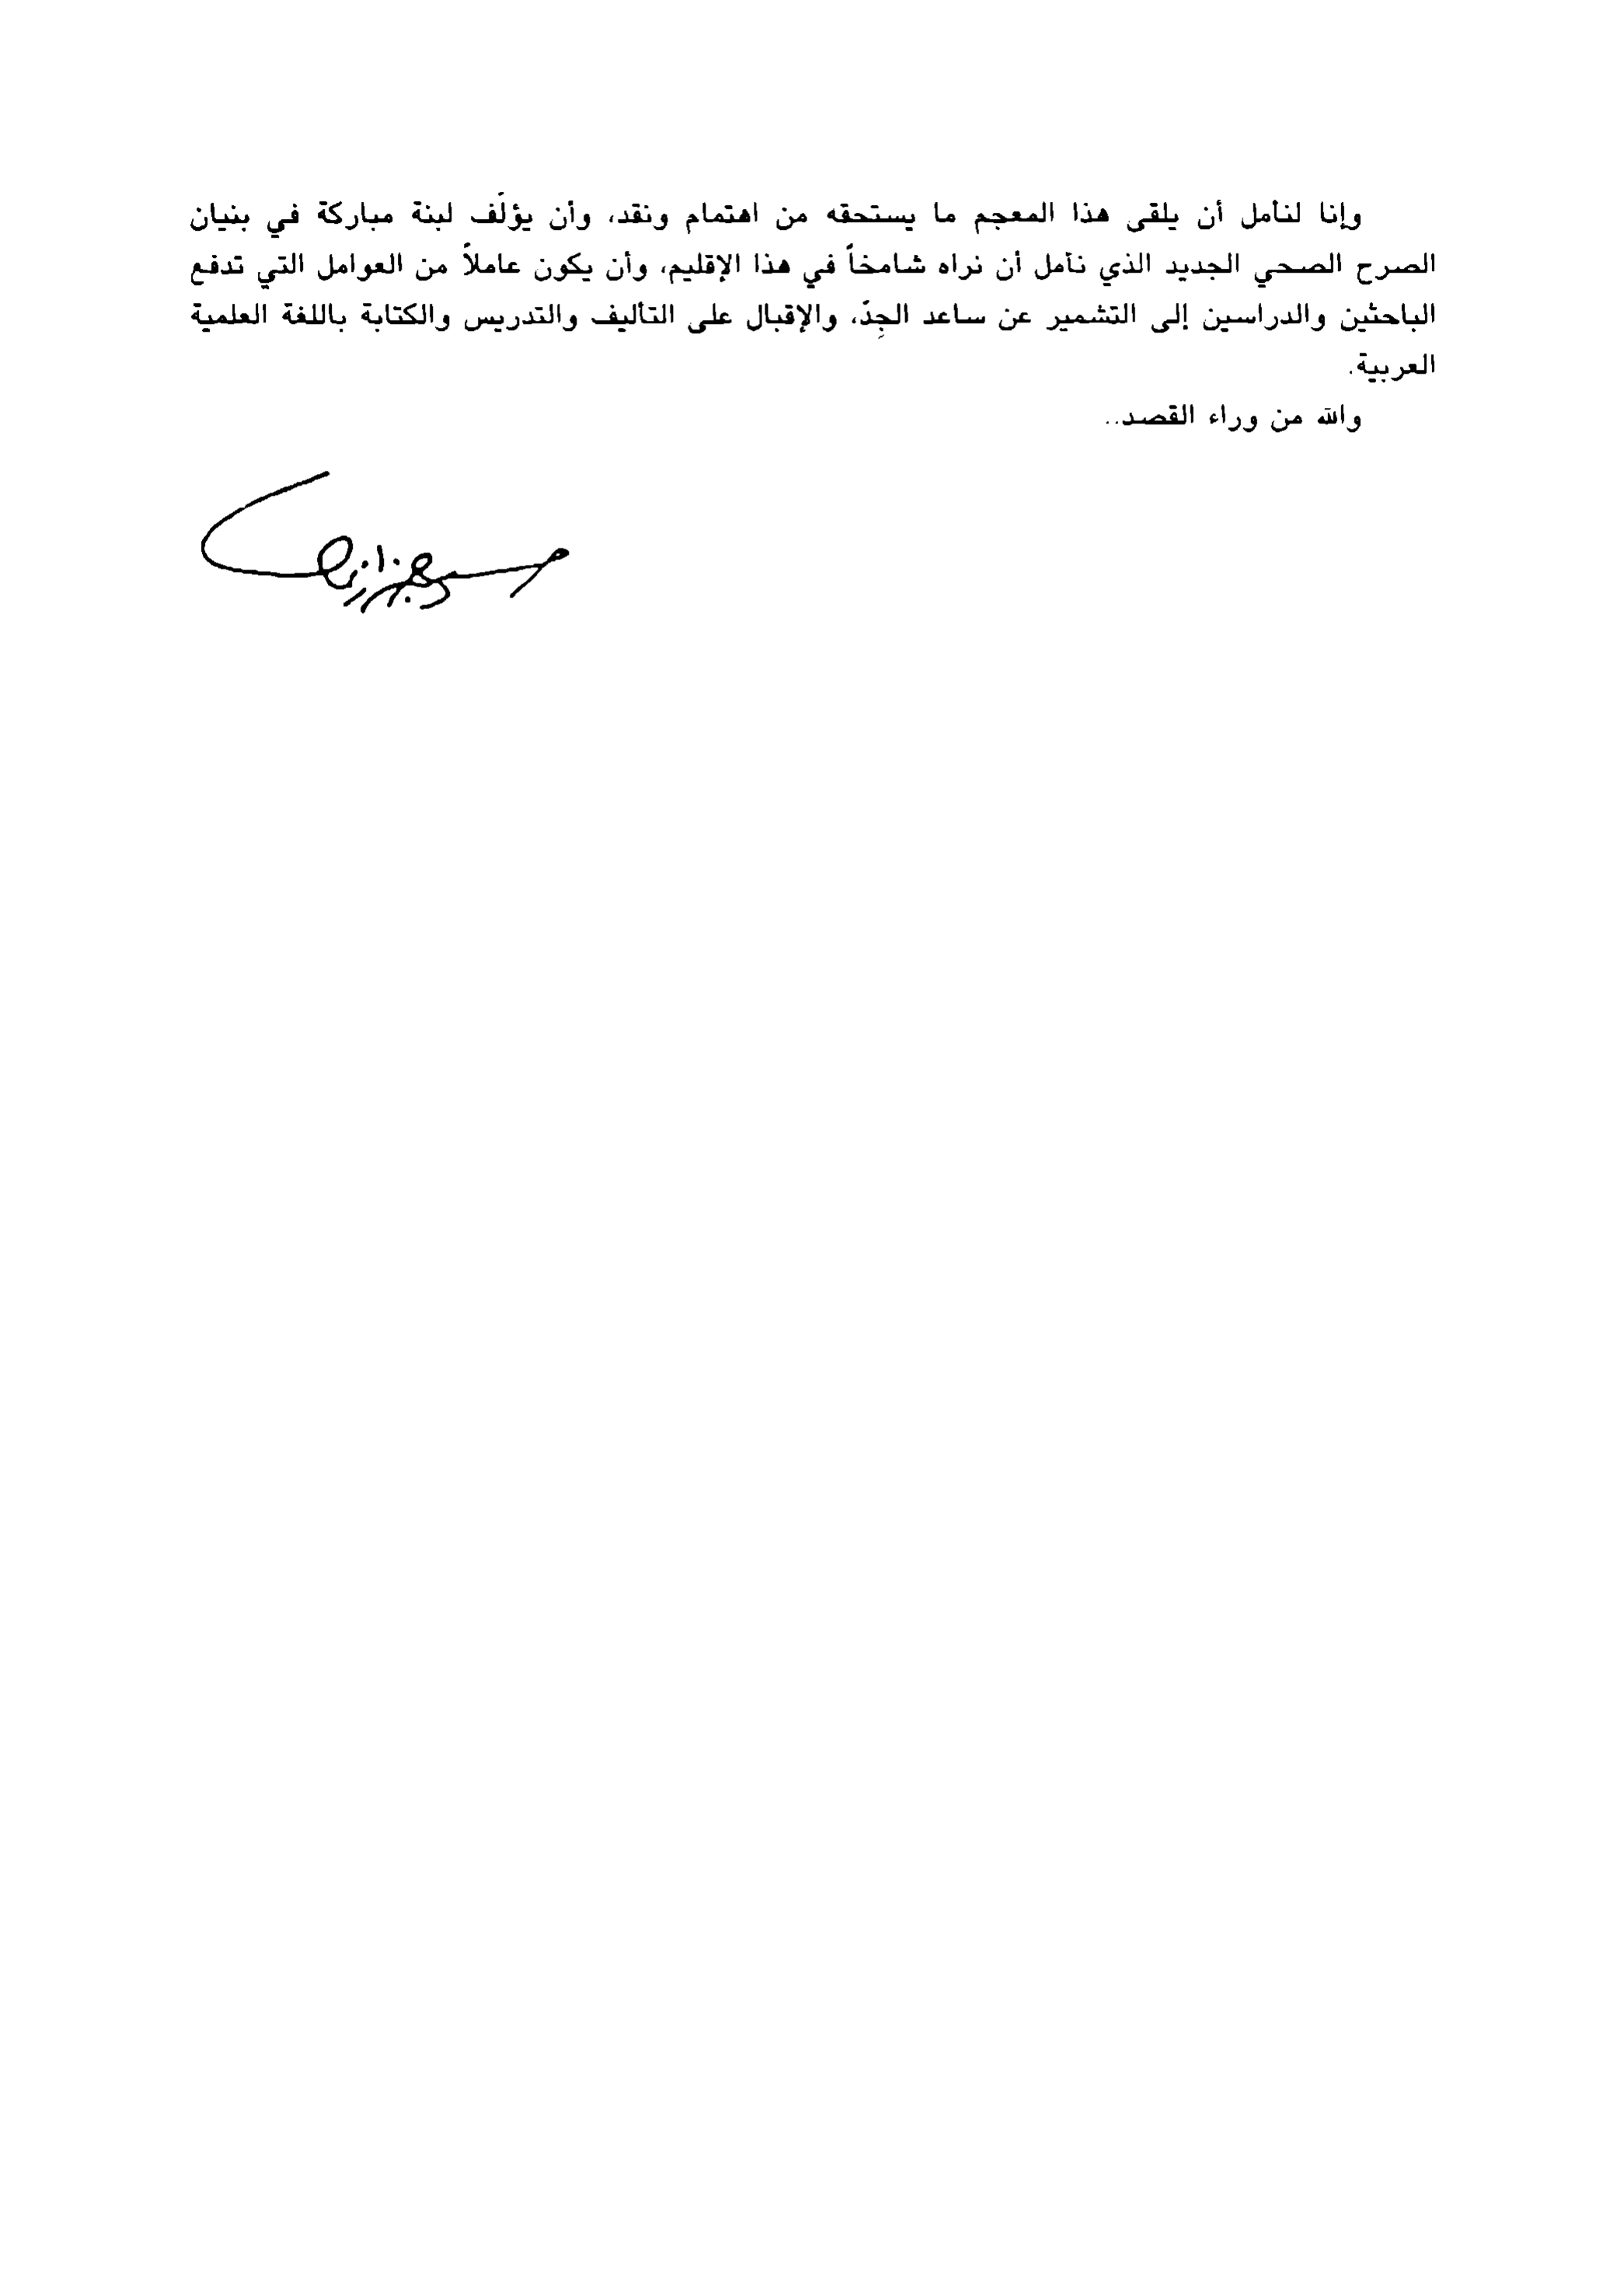 وإنا لنأمل أن يلقى هذا المعجم ما يستحقه من اهتمام ونقد، وأن يؤلّف لبنة مباركة في بنيان
الصرح الصحي الجديد الذي نأمل أن نراه شامخاً في هذا الإقليم، وأن يكون عاملاً من العوامل التي تدفع
الباحثين والدراسين إلى التشمير عن ساعد الجِدّ، والإقبال على التأليف والتدريس والكتابة باللغة العلمية
العربية.
والله من وراء القصد..